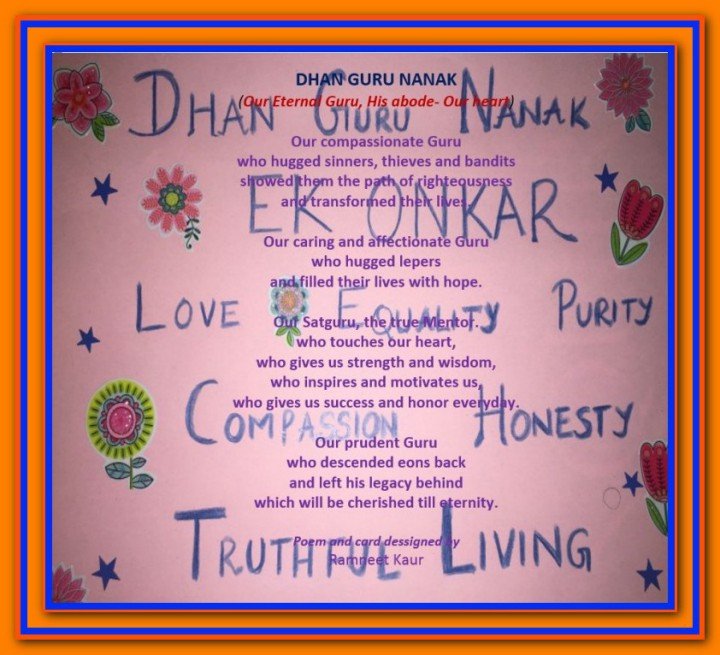 DHAN GURU NANAK
(Our Eternal Guru, His abode- Our heart)
Our compassionate Guru
who hugged sinners, thieves and bandits
showed them the path of righteousness
and transformed their lives.
Our caring and affectionate Guru
who hugged lepers
and filled their lives with hope.
Our Satguru, the true Mentor.
who touches our heart,
who gives us strength and wisdom,
who inspires and motivates us,
who gives us success and honor everyday.
Our prudent Guru
who descended eons back
and left his legacy behind
which will be cherished till eternity.
Poem and card dessigned by
Ramneet Kaur
DHAN GURU NANAK
EK ONKAR
LOVE EQUALITY PURITY
COMPASSION HONESTY
TRUTHFUL LIVING